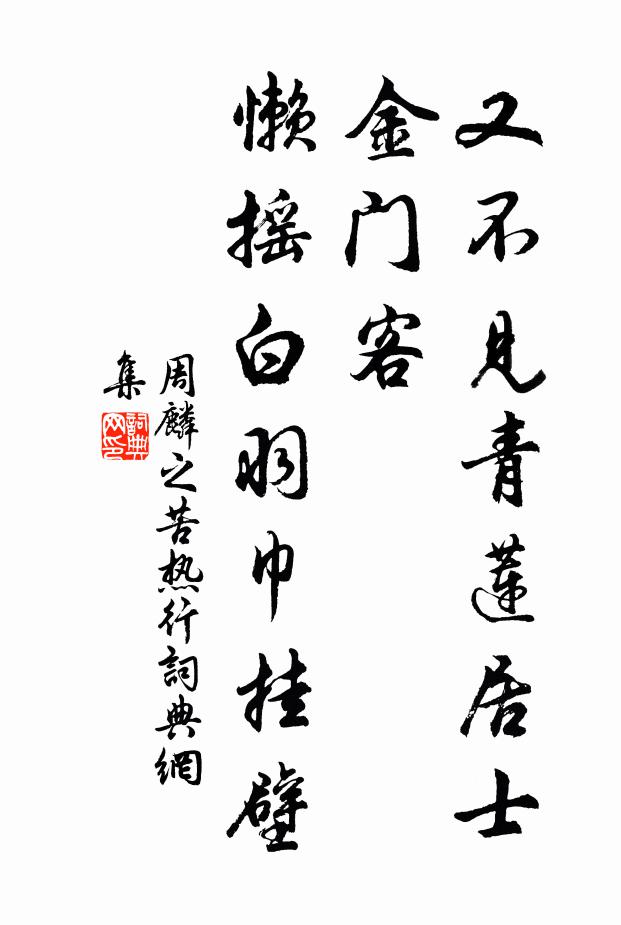 又不见青莲居士
金门客
懒摇白羽巾挂壁
周麟之苦热行詞典網
集
詞典
网印